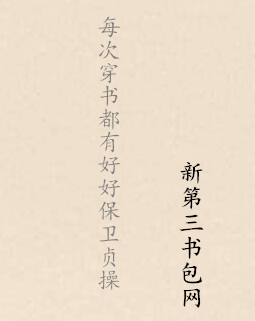 每次穿书都有好好保卫贞操
新第三书包网